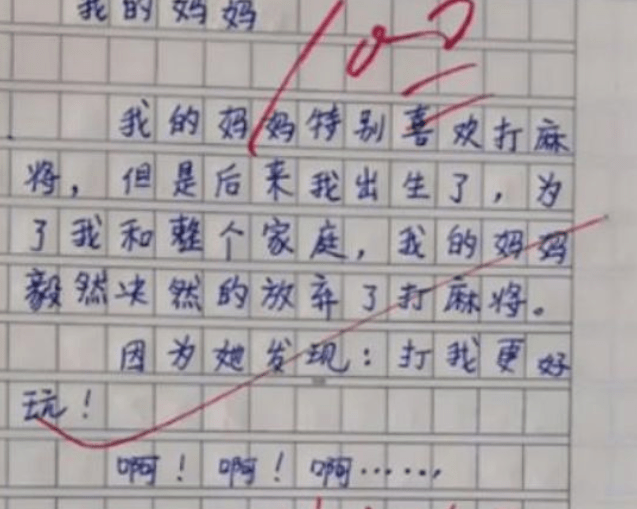 我的妈妈
我的妈妈特别喜欢打麻
将，但是后来我出生了，为
了我和整个家庭，我的妈妈
毅然决然的放弃了打麻将。
因为她发现：打我更好
玩！
啊！啊！啊……